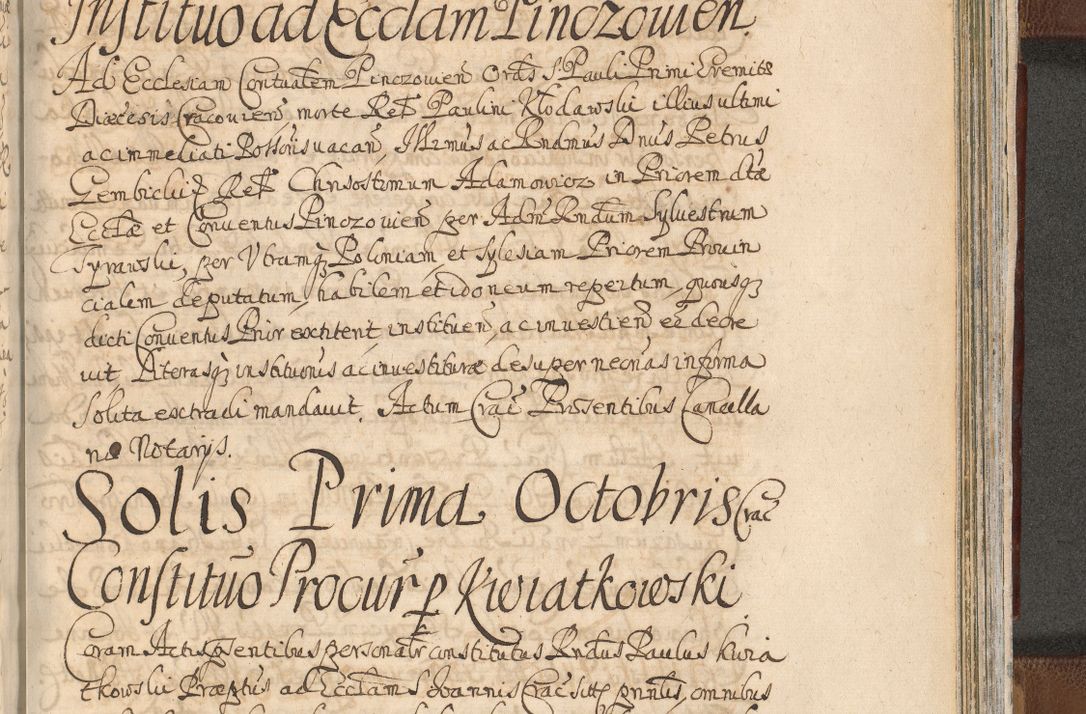 Institūo ad Eccłam Pinczovień.
Ad Ecclesiam Conventualem Pinczovień Ordīs S. Pauli Primi Eremitæ
Diæcesis Cracovieńs morte Rełi Paulini Kłodawski illius ultimi
ac immediati Possōris vacań, Illrīmus ac Rndīmus Dnūs Petrus
Gembicki Ep̄ Rełi Chrisostimum Adamowicz in Priorem dictæ
Eccłæ et Conventus Pinczovień per Adm̄ Rndūm Sylvestrum
Tyrawski, per Utramq Poloniam et Sylesiam Priorem Provin
cialem deputatum, habilem et idoneum repertum, quousq
dicti Conventus Prior extiterit instituen̄, ac investien̄ eē decre
vit, Literasq institūonis ac investituræ desuper necrīas in forma
solita extradi mandavit. Actum Crac̄ Præsentibus Cancella
riæ Notarijs.
Solis Prima Octobris Crac
Constitūo Procur̄ p Kwiatkowski
Coram Actis p̄sentibus personalr̄ constitutus Rndūs Paulus Kwia
tkowski Præptūs ad Eccłam S Joannis Crac̄ sitt̄ pnntīs, omnibus